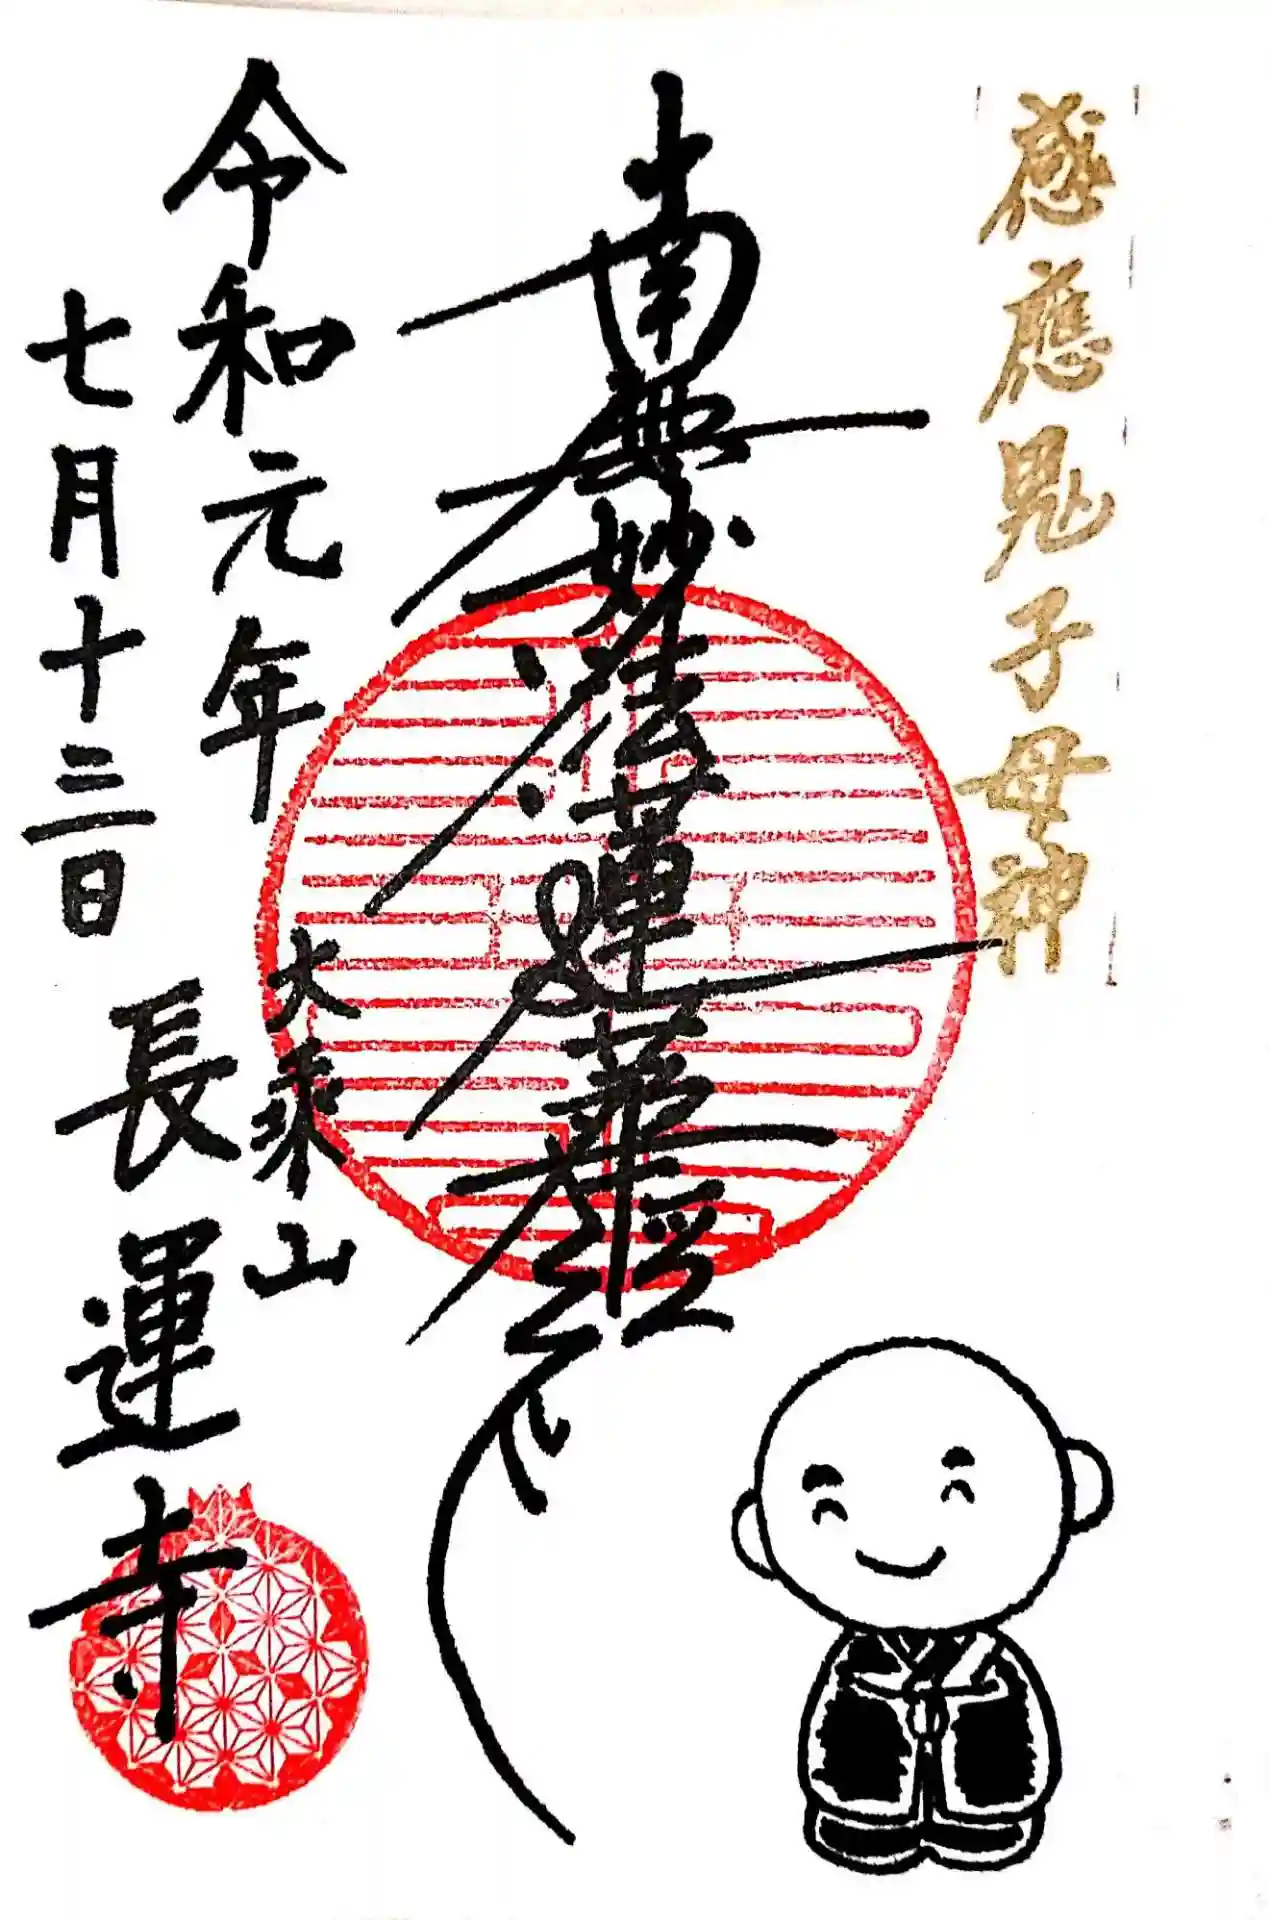 感應鬼子母神
南無妙法蓮華経
大乘山
令和元年
七月十三日
長運寺